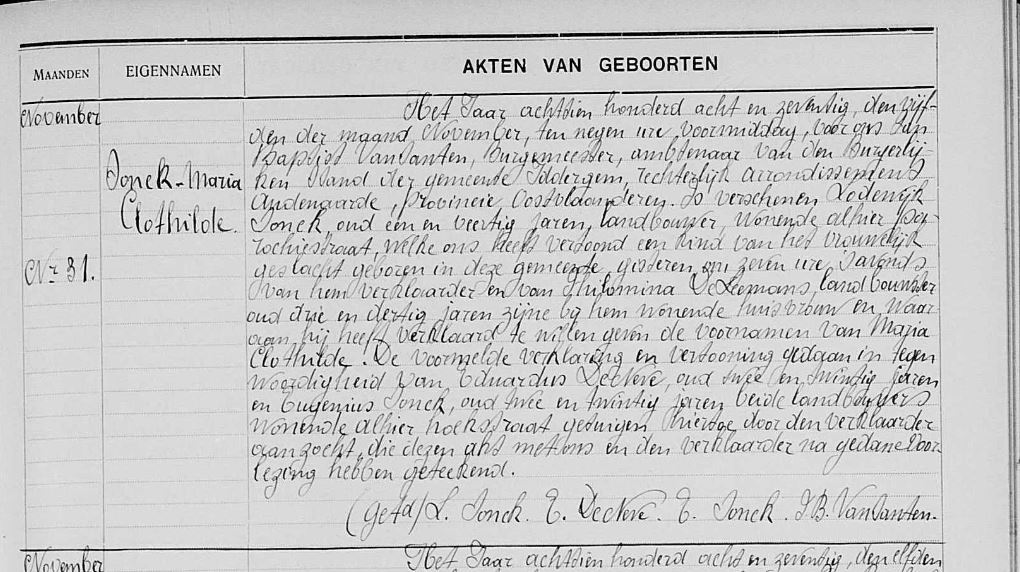 MAANDEN EIGENNAMEN AKTEN VAN GEBOORTEN
November
Jonck-Maria
Clothilde.
Nr 31.
Het Jaar achttien honderd acht en zeventig, den vijf-
den der maand November, ten negen ure, voormiddag, voor ons Jan
Baptist VanSanten, Burgemeester, ambtenaar van den Burgerlij-
ken Stand der gemeente Iddergem, rechterlijk arrondissement
Audenaarde, provincie Oostvlaanderen. Is verschenen Lodewijk
Jonck, oud een en veertig jaren, landbouwer, wonende alhier Pa-
rochiestraat, welke ons heeft vertoond een kind van het vrouwelijk
geslacht geboren in deze gemeente, gisteren om zeven ure 's avonds
van hem verklaarder en van Philomina DeLeemans, landbouwster
oud drie en dertig jaren zijne bij hem wonende huisvrouw en waar
aan hij heeft verklaard te willen geven de voornamen van Maria
Clothilde. De voormelde verklaring en vertooning gedaan in tegen
woordigheid van Eduardus Deckere, oud twee en twintig jaren
en Eugenius Jonck, oud twee en twintig jaren beide landbouwers
wonende alhier hoekstraat getuigen hiertoe door den verklaarder
aanzocht, die dezen akt met ons en den verklaarder na gedane voor
lezing hebben geteekend.
(Getd) L. Jonck. E. Deckere. E. Jonck. J B. VanSanten.
November
Het Jaar achttien honderd acht en zeventig, den elfden